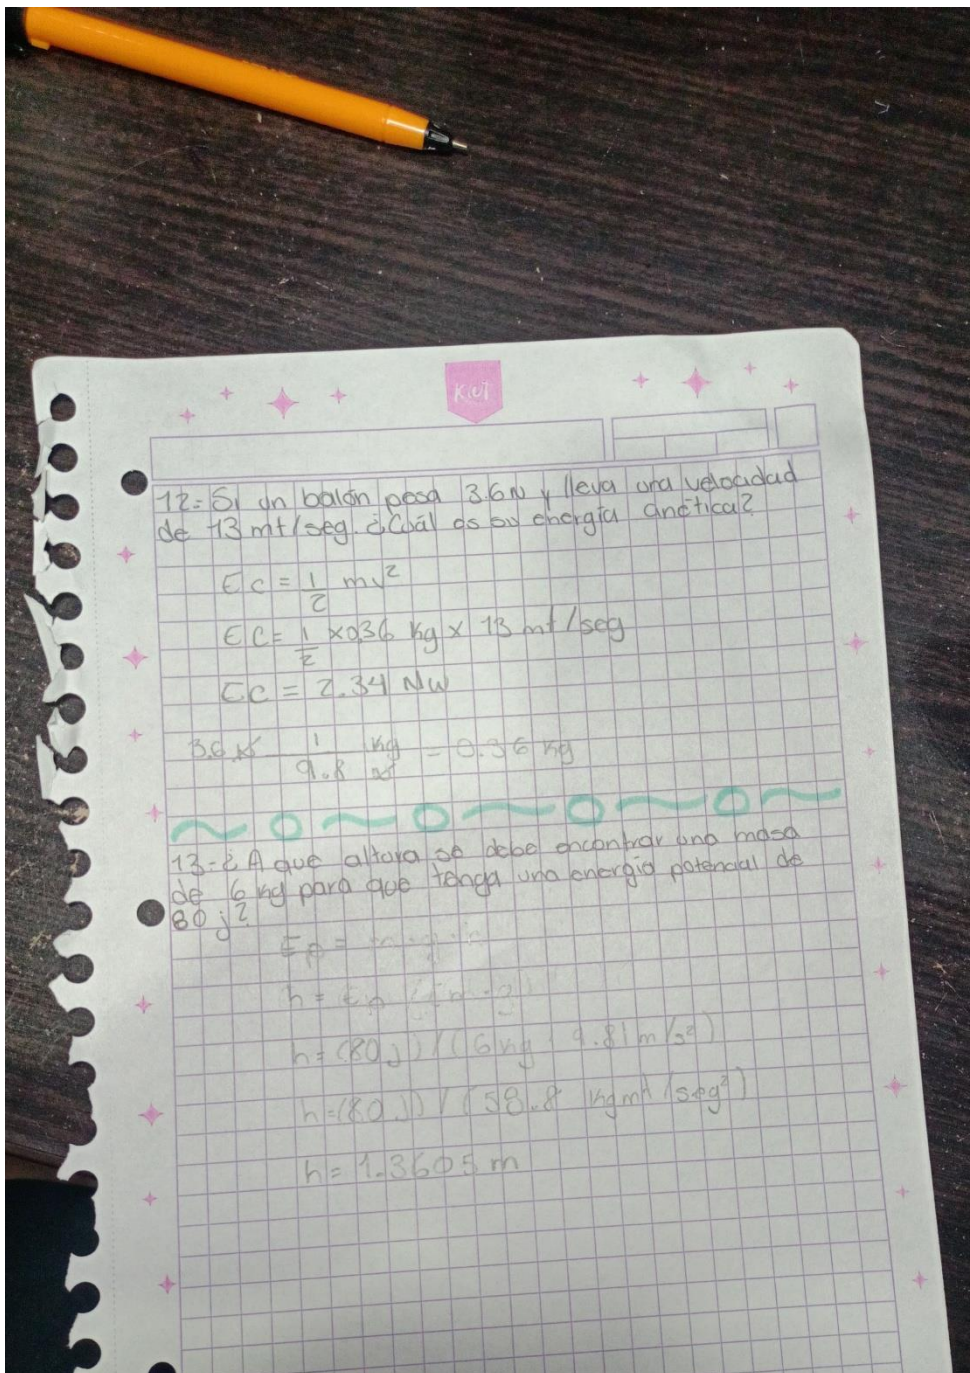 Kiut
12.- Si un balón pesa 3.6N y lleva una velocidad
de 13 mt/seg. ¿Cuál es su energía cinética?
Ec = 1/2 mv²
Ec = 1/2 x 0.36 Kg x 13 mt/seg
Ec = 2.34 Nw
3.6 N 1/9.8 Kg/N = 0.36 Kg
13.- ¿A que altura se debe encontrar una masa
de 6 kg para que tenga una energia potencial de
80 j?
Ep = m·g·h
h = Ep / (m·g)
h = (80 j) / (6 kg · 9.81 m/s²)
h = (80 J) / (58.8 kgmt/seg²)
h = 1.3605 m